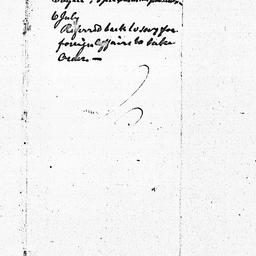 6 July
Referred back to Secy for
foreign affairs to take
Order. —